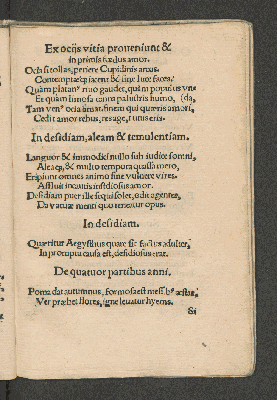 Ex ocijs vitia proueniunt &
in primis fœdus amor.
Ocia si tollas, periere Cupidinis arcus.
Contemptæq; iacent & sine luce faces.
Quàm platanꝰ riuo gaudet, quàm populus vnda,
Et quàm limosa canna palustris humo, (da,
Tam venꝰ ocia amat, finem qui quæris amori,
Cedit amor rebus, res age, tutus eris.
In desidiam, aleam & temulentiam.
Languor & immodici nullo sub iudice somni,
Aleaq;, & multo tempora quassa mero,
Eripiunt omnes animo sine vulnere vires.
Affluit incautis insidiosus amor.
Desidiam puer ille sequi solet, odit agentes,
Da vacuæ menti quo teneatur opus.
In desidiam.
Quæritur Aegysthus quare sit factus adulter,
In promptu causa est, desidiosus erat.
De quatuor partibus anni.
Poma dat autumnus, formosa est messibꝰ æstas,
Ver præbet flores, igne leuatur hyems.
Si